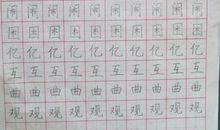 困 困 困 困 困 困 困 困 困
亿 亿 亿 亿 亿 亿 亿 亿 亿
互 互 互 互 互 互 互 互 互
曲 曲 曲 曲 曲 曲 曲 曲 曲
观 观 观 观 观 观 观 观 观